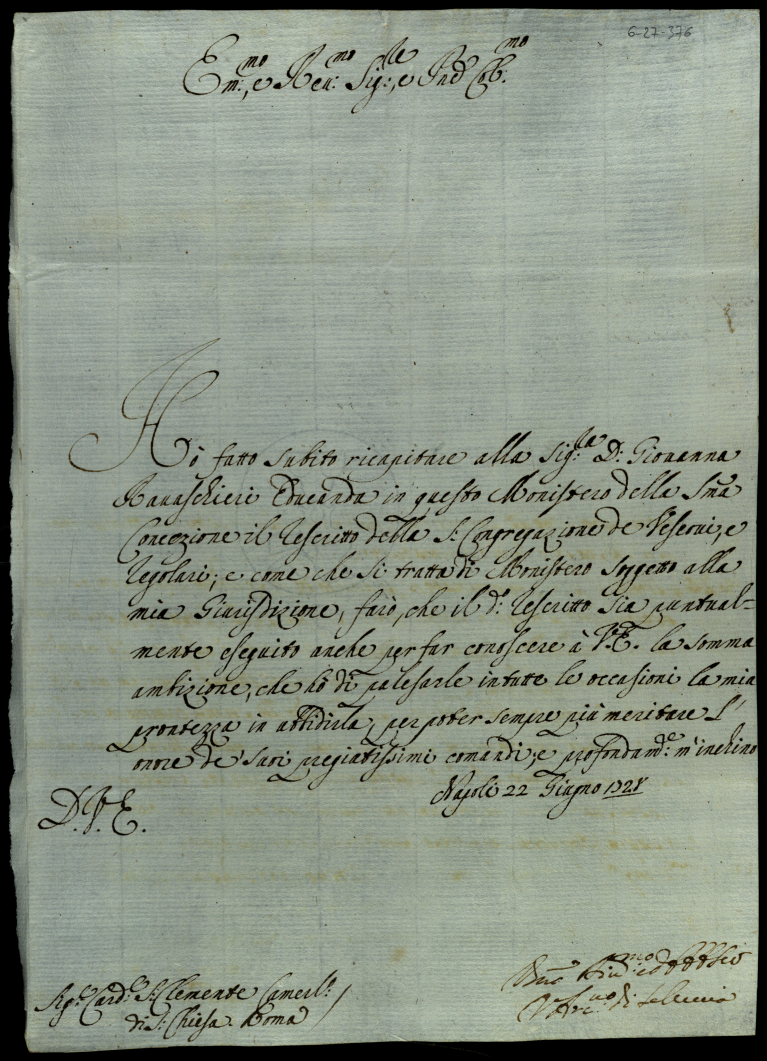 6-27-376
Em:mo, e Reu:mo Sig:re, e Pnē Col:mo
Hò fatto subito ricapitare alla Sig:ra D: Giouanna
Rauaschieri Educanda in questo Monistero della Sm̃a
Concezione il Rescritto della S: Congregazione de Vescoui, e
Regolari; e come che si tratta di Monistero soggetto alla
mia Giurisdizione, farò, che il d:o Rescritto sia puntual=
mente eseguito anche per far conoscere à V:E. la somma
ambizione, che hò di palesarle in tutte le occasioni la mia
prontezza in vbbidirla, per poter sempre più meritare l'
onore de' suoi pregiatissimi comandi; e profondam:te m'inchino
D. V. E. Napoli 22 Giugno
Sig:r Card:e S: Clemente Camerl:o
di S: Chiesa. Roma
di Seleucia